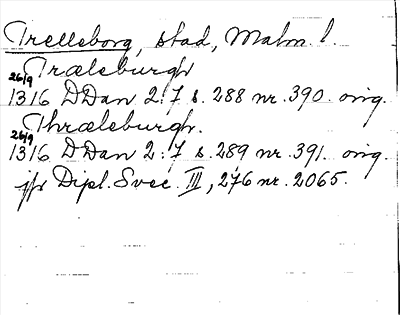 Trelleborg, stad, Malm l.
Træleburgh
26/9
1316 DDan 2:7 s. 288 nr. 390. orig.
Thræleburgh.
26/9
1316 DDan 2:7 s. 289 nr. 391. orig.
jfr Dipl. Svec. III, 276 nr. 2065.